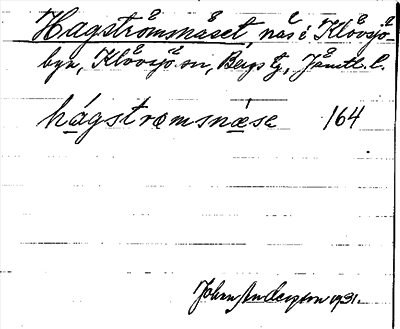 Hagströmnäset, näs i Klövsjö
byn, Klövsjö sn, Bergs tg, Jämtl. l.
hágstrœmsnæse 164
Johan Anderzon 1931.